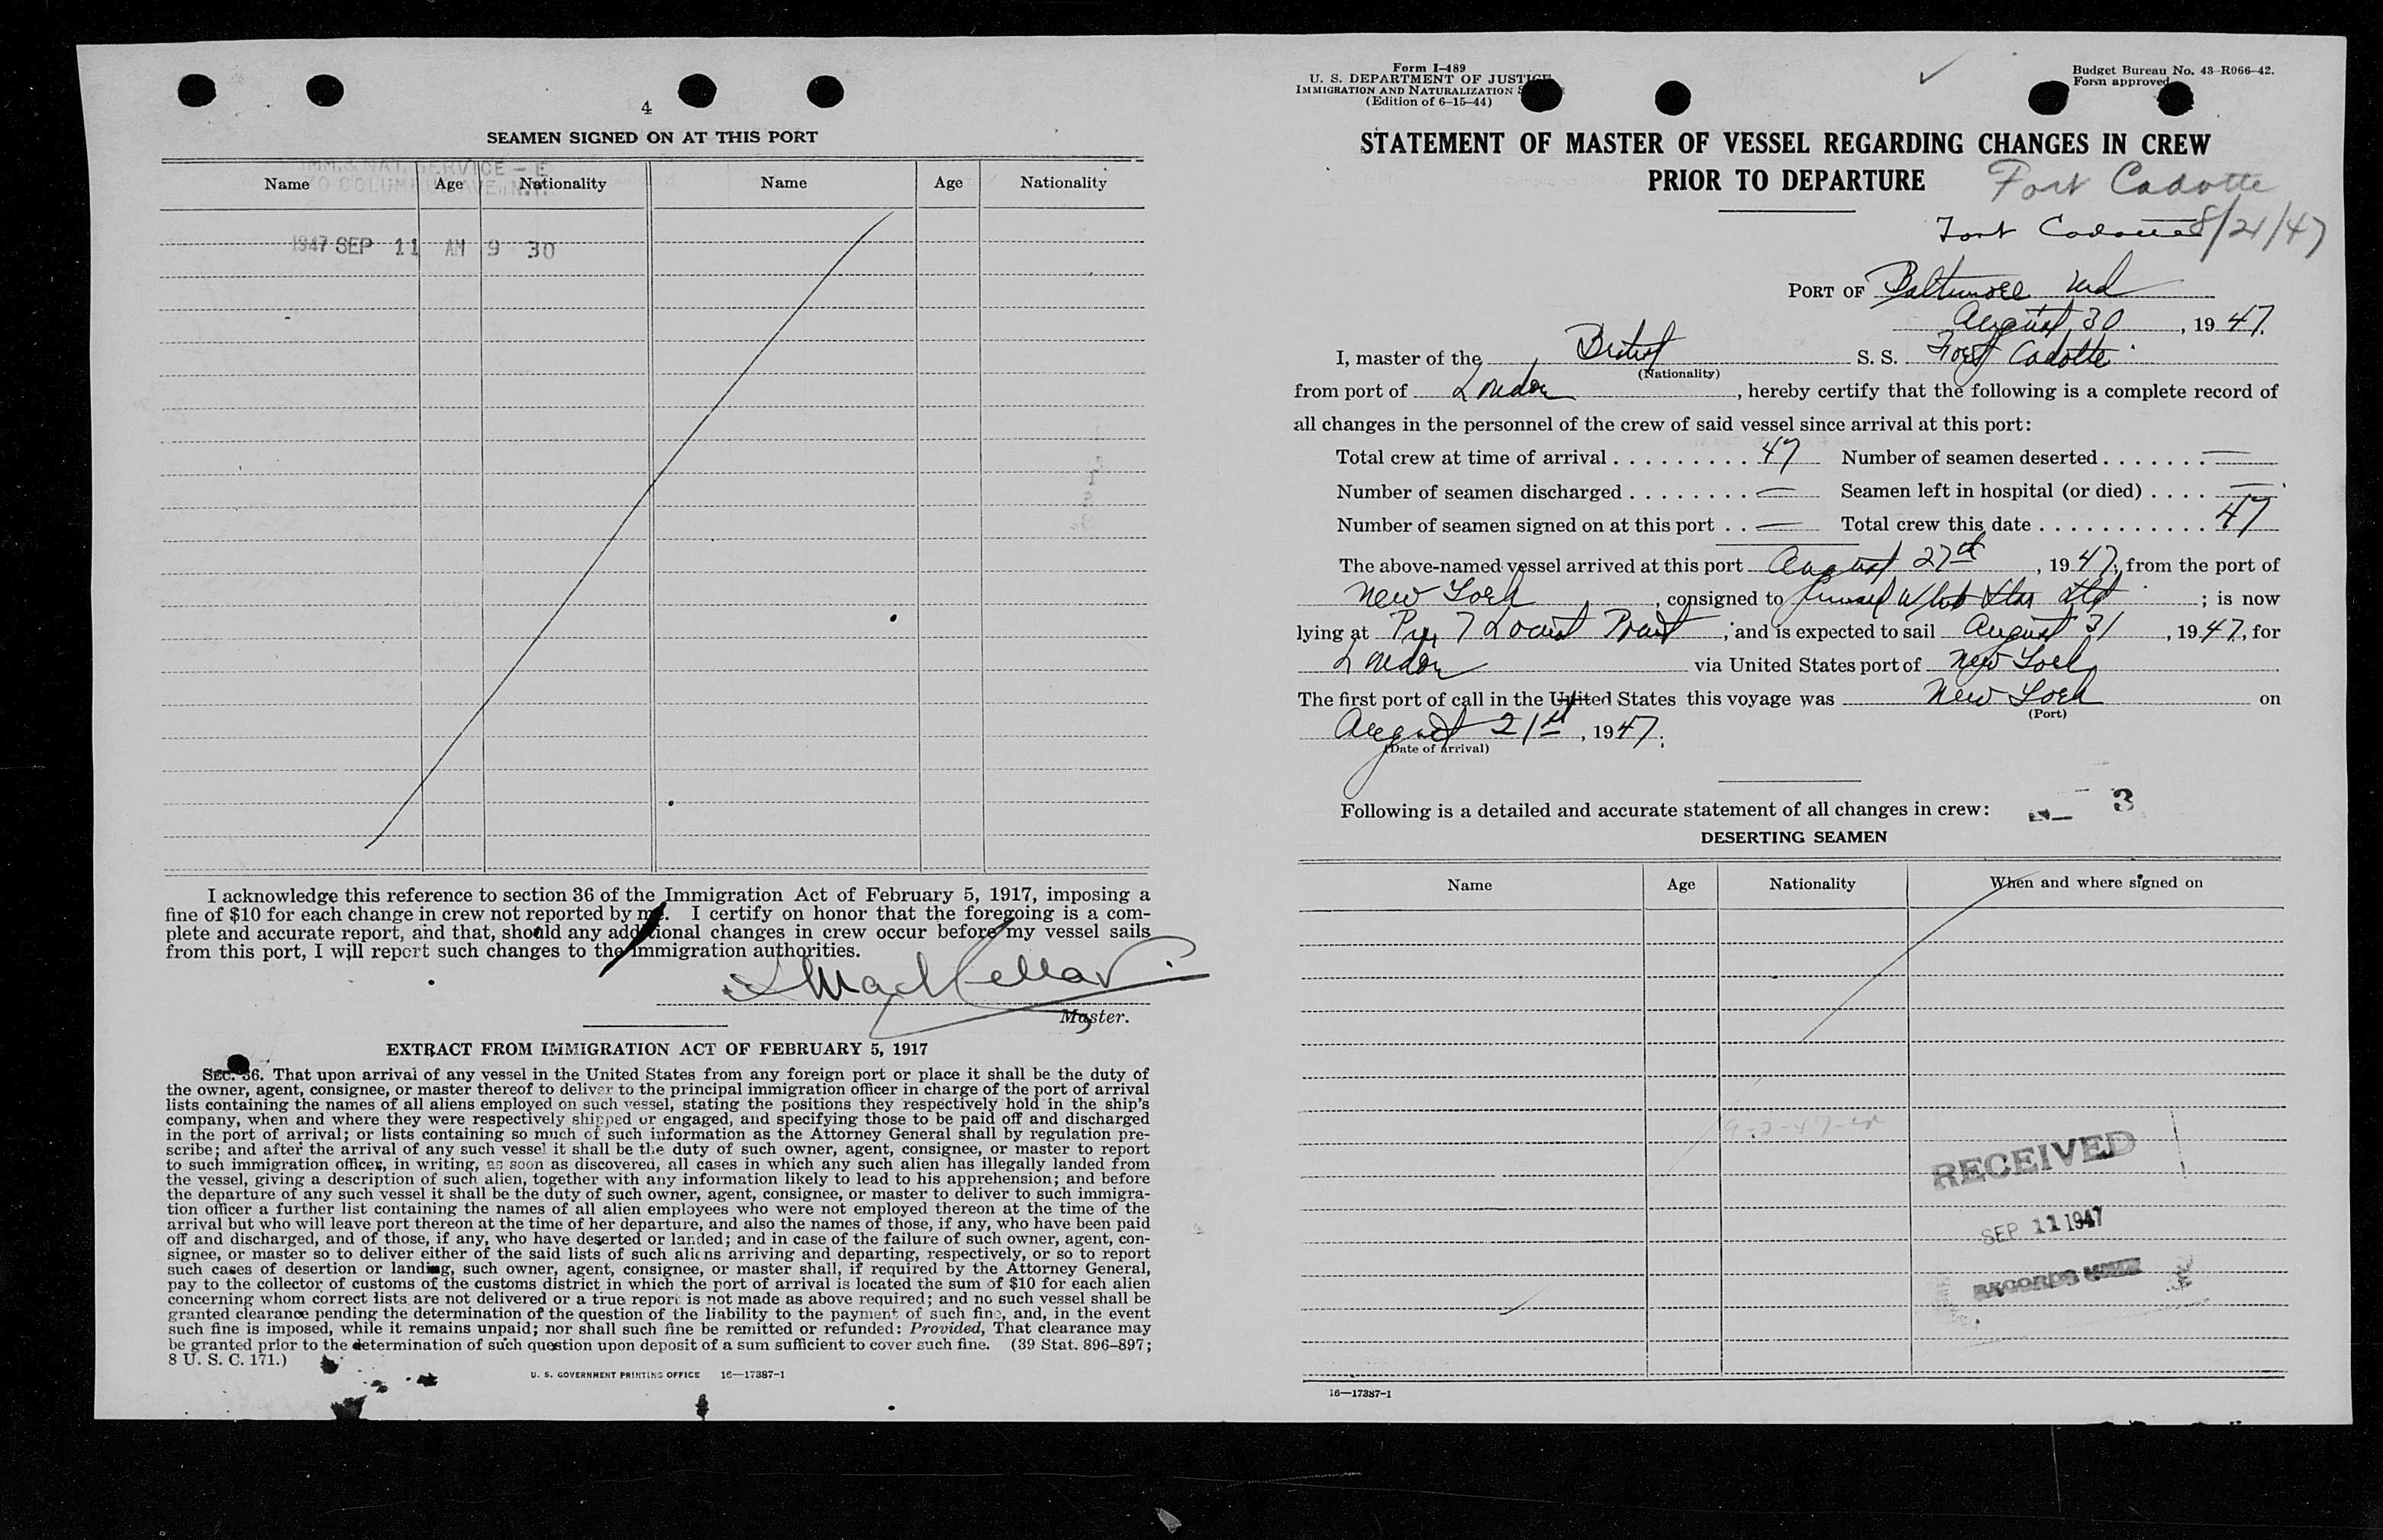 4
SEAMEN SIGNED ON AT THIS PORT
IMM. & NAT. SERVICE – E
70 COLUMBUS AVE. N.Y.
Name Age Nationality Name Age Nationality
1947 SEP 11 AM 9 30
I acknowledge this reference to section 36 of the Immigration Act of February 5, 1917, imposing a
fine of $10 for each change in crew not reported by me. I certify on honor that the foregoing is a com-
plete and accurate report, and that, should any additional changes in crew occur before my vessel sails
from this port, I will report such changes to the immigration authorities.
MacKellar
Master.
EXTRACT FROM IMMIGRATION ACT OF FEBRUARY 5, 1917
SEC. 36. That upon arrival of any vessel in the United States from any foreign port or place it shall be the duty of
the owner, agent, consignee, or master thereof to deliver to the principal immigration officer in charge of the port of arrival
lists containing the names of all aliens employed on such vessel, stating the positions they respectively hold in the ship's
company, when and where they were respectively shipped or engaged, and specifying those to be paid off and discharged
in the port of arrival; or lists containing so much of such information as the Attorney General shall by regulation pre-
scribe; and after the arrival of any such vessel it shall be the duty of such owner, agent, consignee, or master to report
to such immigration officer, in writing, as soon as discovered, all cases in which any such alien has illegally landed from
the vessel, giving a description of such alien, together with any information likely to lead to his apprehension; and before
the departure of any such vessel it shall be the duty of such owner, agent, consignee, or master to deliver to such immigra-
tion officer a further list containing the names of all alien employees who were not employed thereon at the time of the
arrival but who will leave port thereon at the time of her departure, and also the names of those, if any, who have been paid
off and discharged, and of those, if any, who have deserted or landed; and in case of the failure of such owner, agent, con-
signee, or master so to deliver either of the said lists of such aliens arriving and departing, respectively, or so to report
such cases of desertion or landing, such owner, agent, consignee, or master shall, if required by the Attorney General,
pay to the collector of customs of the customs district in which the port of arrival is located the sum of $10 for each alien
concerning whom correct lists are not delivered or a true report is not made as above required; and no such vessel shall be
granted clearance pending the determination of the question of the liability to the payment of such fine, and, in the event
such fine is imposed, while it remains unpaid; nor shall such fine be remitted or refunded: Provided, That clearance may
be granted prior to the determination of such question upon deposit of a sum sufficient to cover such fine. (39 Stat. 896–897;
8 U. S. C. 171.)
U. S. GOVERNMENT PRINTING OFFICE 16—17387-1
Form I-489
U. S. DEPARTMENT OF JUSTICE
IMMIGRATION AND NATURALIZATION S
(Edition of 6-15-44)
Budget Bureau No. 43-R066-42.
Form approved
STATEMENT OF MASTER OF VESSEL REGARDING CHANGES IN CREW
PRIOR TO DEPARTURE
Fort Cadotte
Fort Cadotte 8/21/47
PORT OF Baltimore Md
August 30, 1947.
I, master of the British S. S. Fort Cadotte
(Nationality)
from port of London, hereby certify that the following is a complete record of
all changes in the personnel of the crew of said vessel since arrival at this port:
Total crew at time of arrival . . . . . . . . . . 47 Number of seamen deserted . . . . . . . —
Number of seamen discharged . . . . . . . . — Seamen left in hospital (or died) . . . . —
Number of seamen signed on at this port . . — Total crew this date . . . . . . . . . . . 47
The above-named vessel arrived at this port August 27th, 1947, from the port of
New York, consigned to Cunard White Star Ltd; is now
lying at Pier 7 Locust Point, and is expected to sail August 31, 1947, for
London via United States port of New York
The first port of call in the United States this voyage was New York on
(Port)
August 21st, 1947.
(Date of arrival)
Following is a detailed and accurate statement of all changes in crew: 3
DESERTING SEAMEN
Name Age Nationality When and where signed on
9-2-47
RECEIVED
SEP 11 1947
RECORDS UNIT
16—17387-1